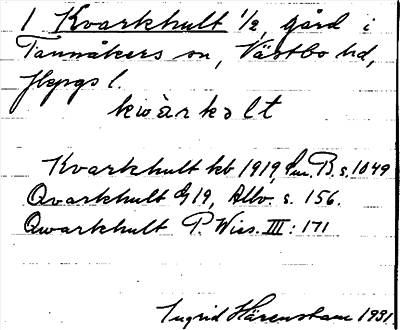 1 Kvarkhult 1/2, gård i
Tannåkers sn, Västbo hd,
Jkpgs l.
kwàrkəlt
Kvarkhult kb 1919, Sm. B. s. 1049
Qvarkhult G19, Allv. s. 156.
Qwarkhult P. Wies. III: 171
Ingrid Härenstam 1931.